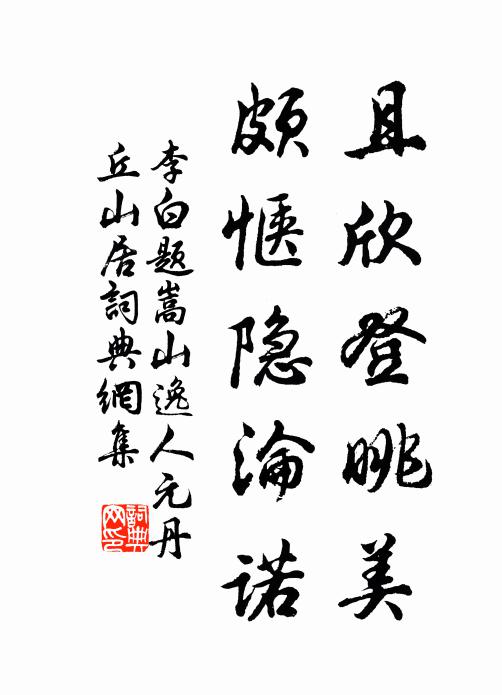 且欣登眺美
頗愜隐淪諾
李白題嵩山逸人元丹
丘山居詞典網集
詞典网印